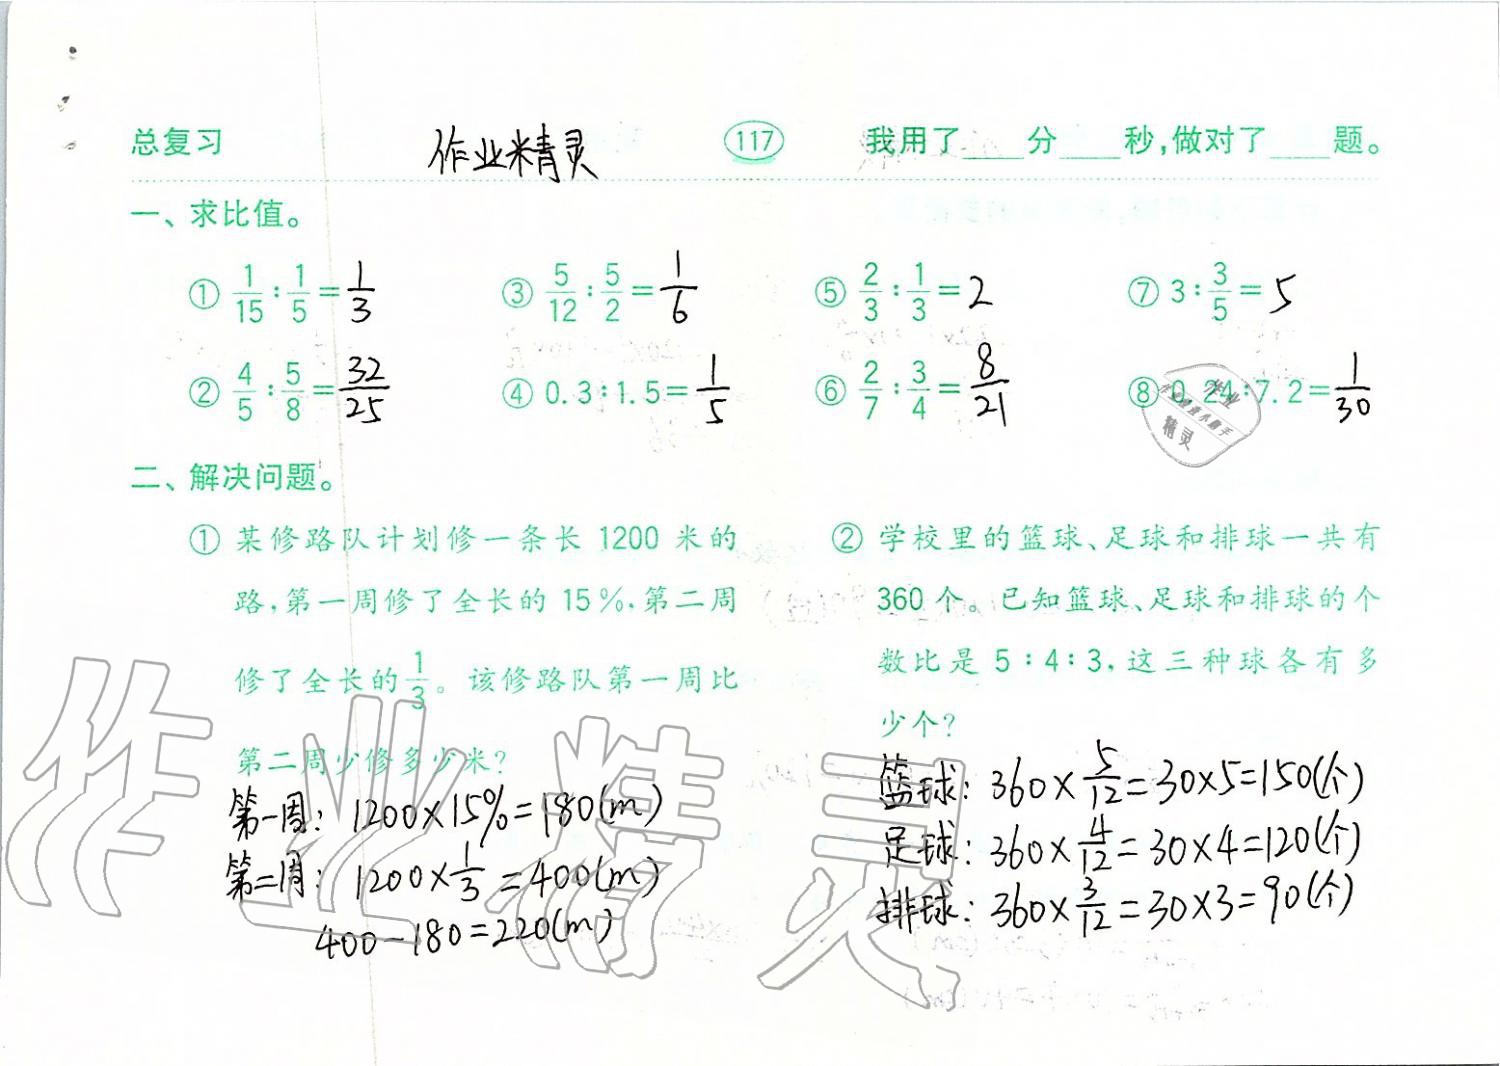 总复习 作业精灵 117 我用了____分____秒,做对了____题。
一、求比值。
① 1/15 : 1/5 = 1/3 ③ 5/12 : 5/2 = 1/6 ⑤ 2/3 : 1/3 = 2 ⑦ 3 : 3/5 = 5
② 4/5 : 5/8 = 32/25 ④ 0.3 : 1.5 = 1/5 ⑥ 2/7 : 3/4 = 8/21 ⑧ 0.24 : 7.2 = 1/30
作业
精灵
二、解决问题。
① 某修路队计划修一条长 1200 米的
路,第一周修了全长的 15%,第二周
修了全长的 1/3。该修路队第一周比
第二周少修多少米?
第一周: 1200×15%=180(m)
第二周: 1200×1/3=400(m)
400-180=220(m)
② 学校里的篮球、足球和排球一共有
360 个。已知篮球、足球和排球的个
数比是 5:4:3,这三种球各有多
少个?
篮球: 360×5/12=30×5=150(个)
足球: 360×4/12=30×4=120(个)
排球: 360×3/12=30×3=90(个)
作业精灵